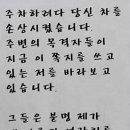 주차하려다 당신 차를
손상시켰습니다.
주변의 목격자들이
지금 이 쪽지를 쓰고
있는 저를 바라보고
있습니다.
그들은 분명 제가